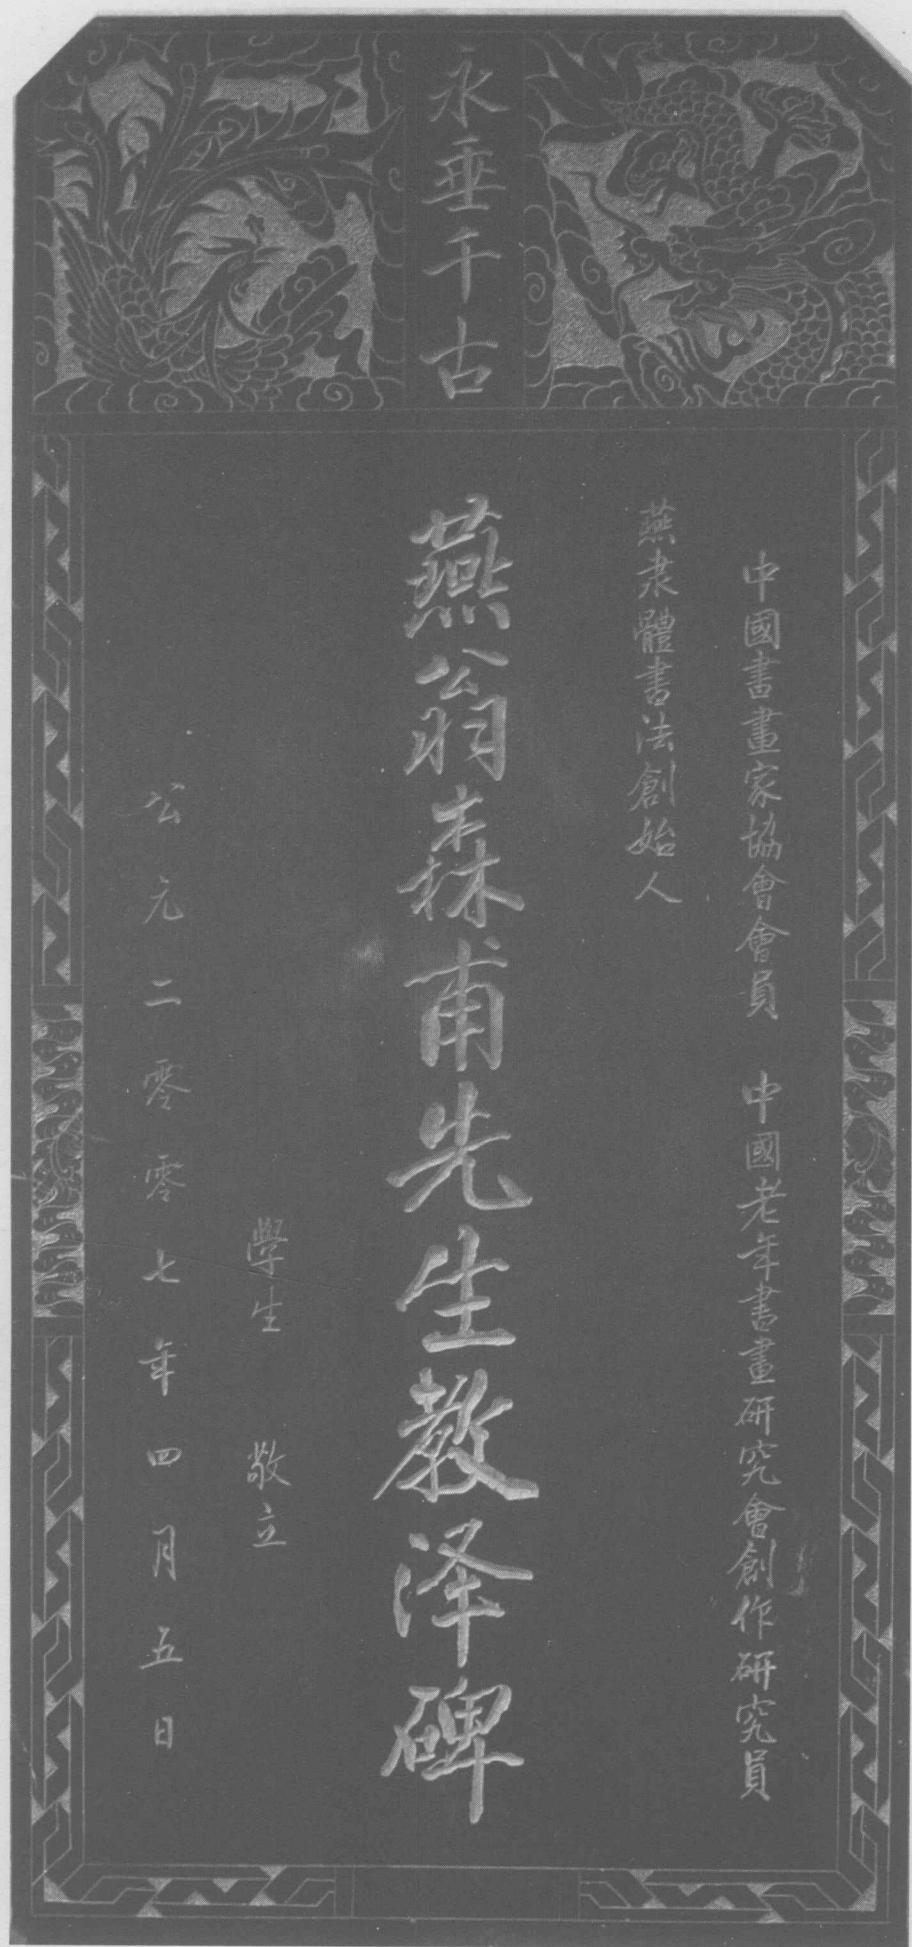 永垂千古
中國書畫家協會會員 中國老年書畫研究會創作研究員
燕隶體書法創始人
燕翁森甫先生教泽碑
學生 敬立
公元二零零七年四月五日